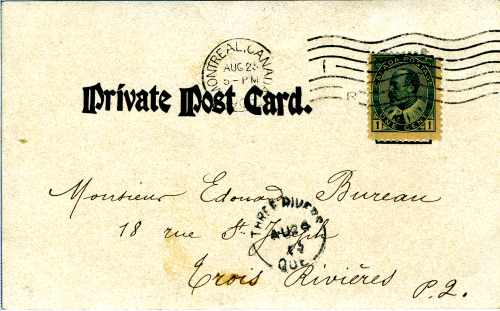 MONTREAL, CANADA
AUG 23
5-PM
CANADA POSTAGE
ONE CENT
1 1
Private Post Card.
Monsieur Edouard Bureau
18 rue St. Joseph
Trois Rivières
P.Q.
THREE RIVERS
AU 24
QUE